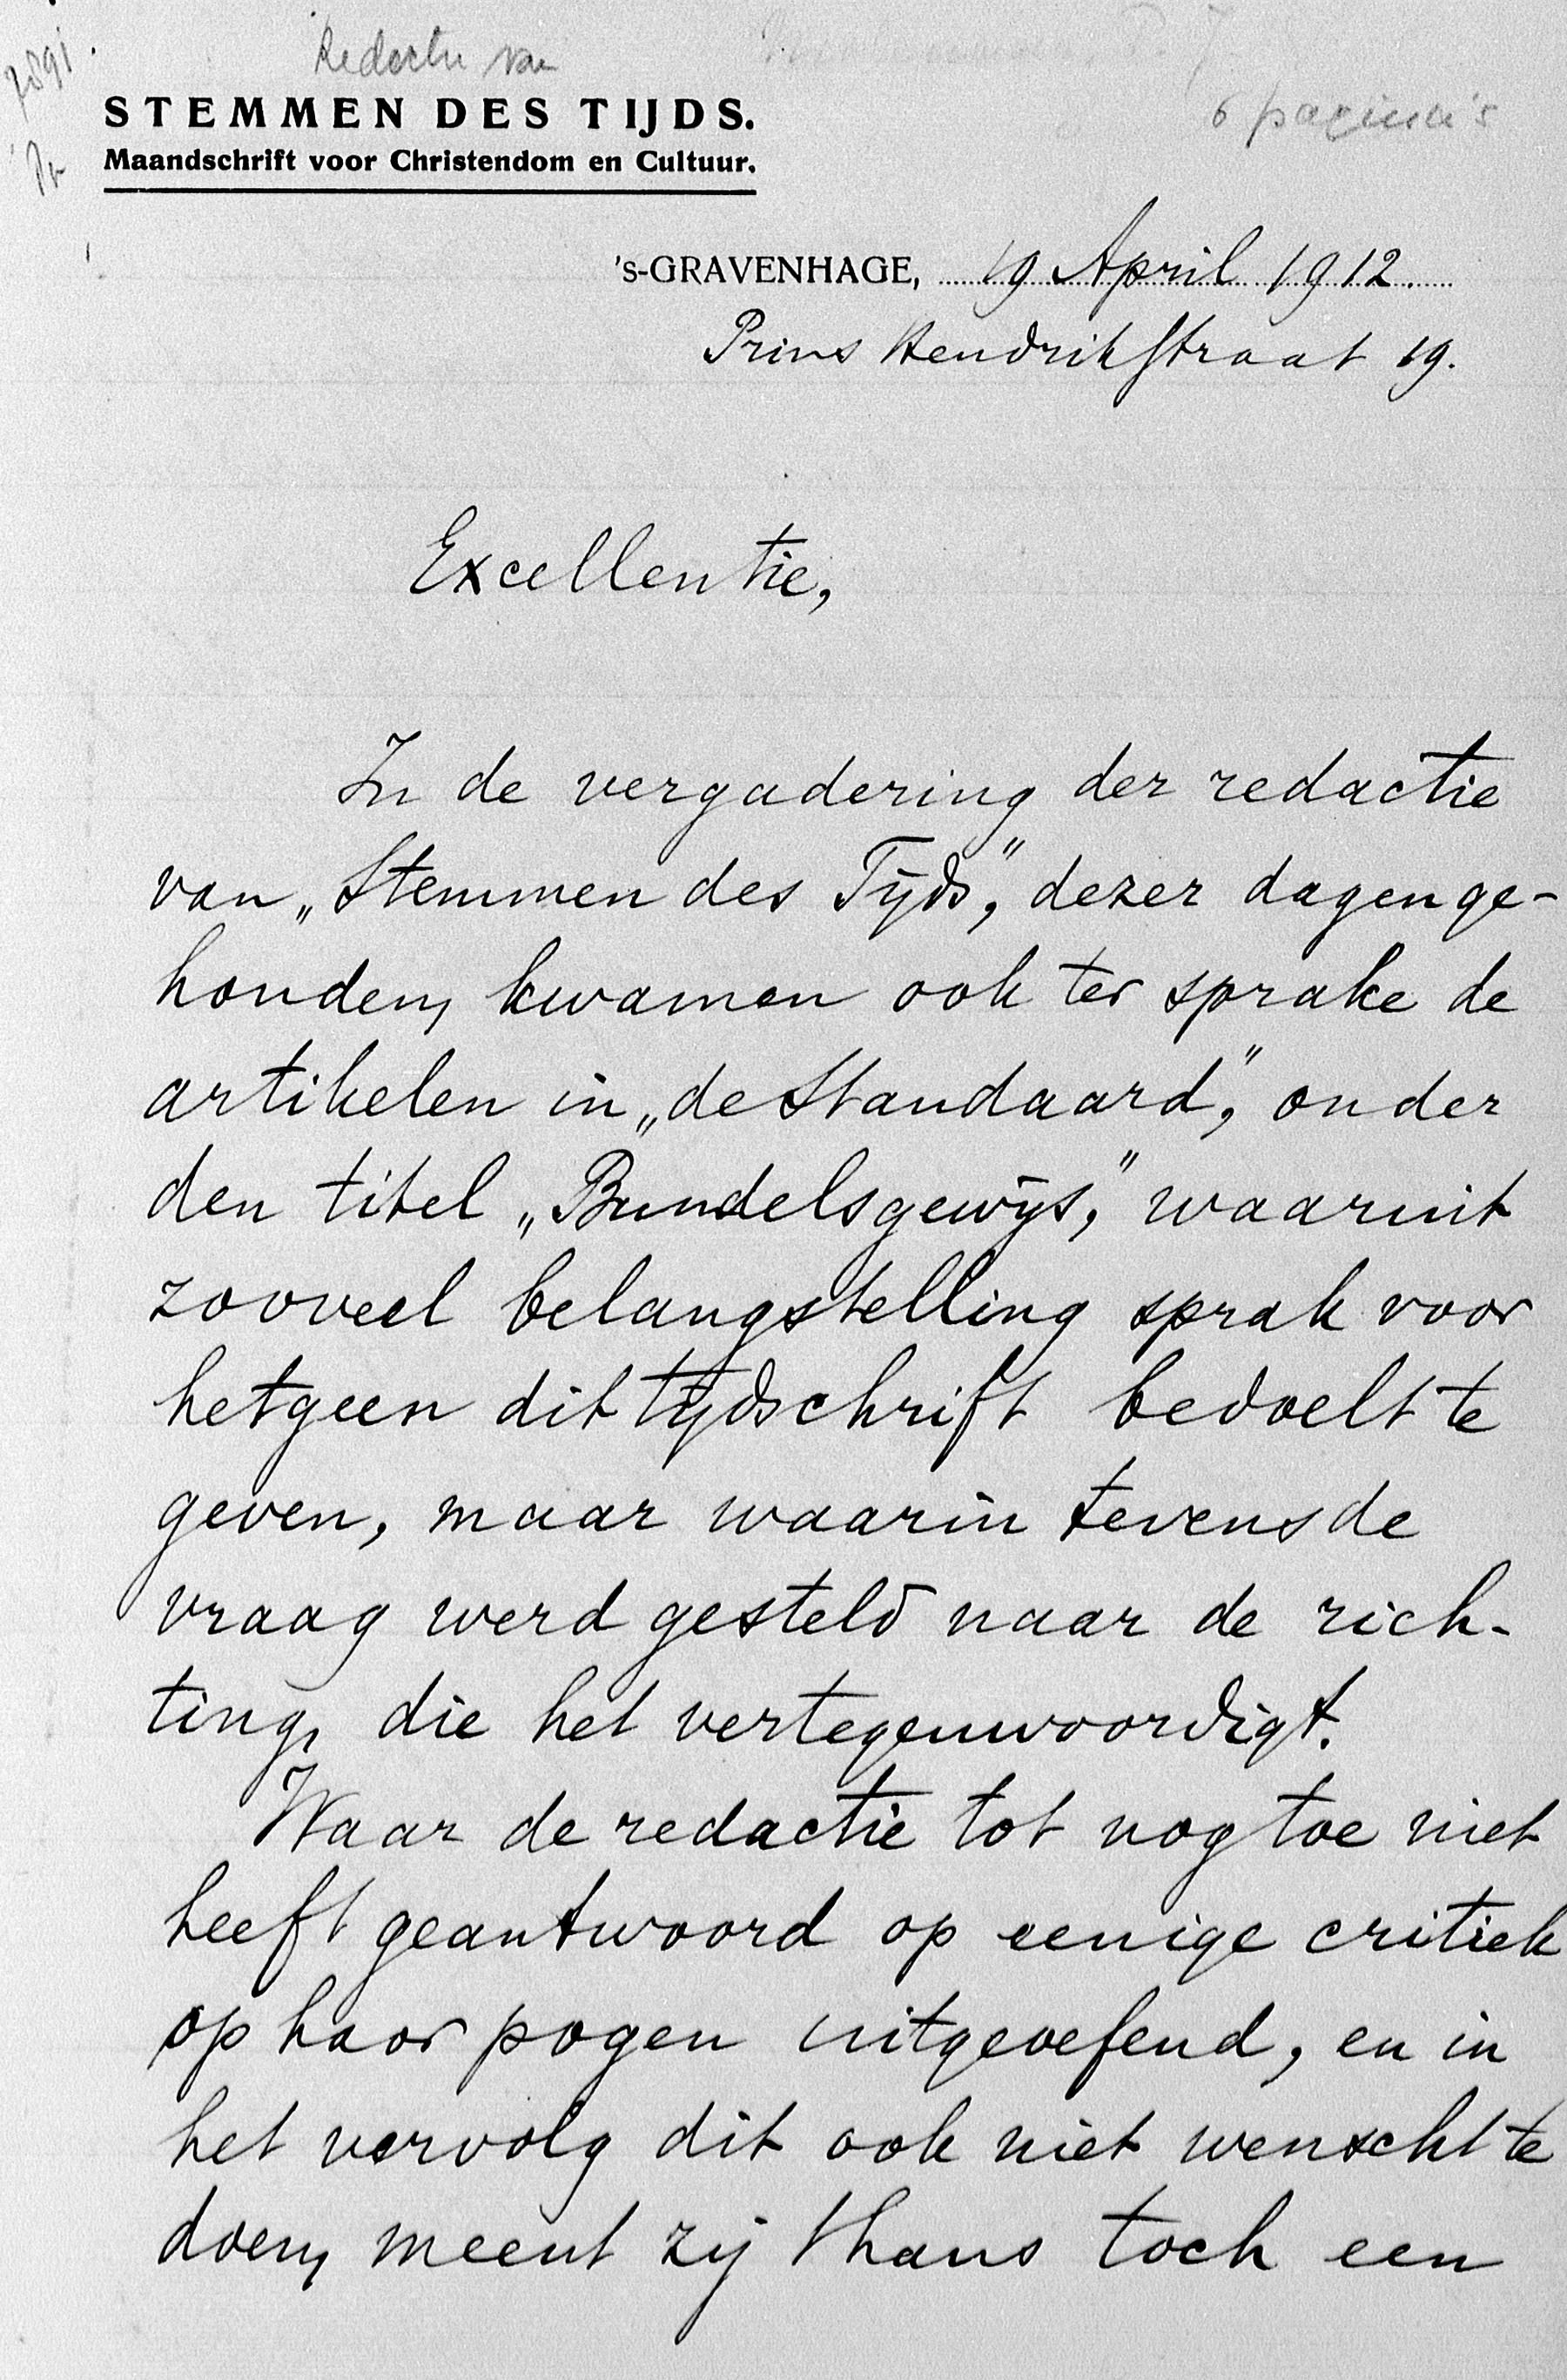 7891
Redactie van
6 pagina's
STEMMEN DES TIJDS.
Maandschrift voor Christendom en Cultuur.
's-GRAVENHAGE, 19 April 1912.
Prins Hendrikstraat 19.
Excellentie,
In de vergadering der redactie
van „Stemmen des Tijds," dezer dagen ge-
houden, kwamen ook ter sprake de
artikelen in „de Standaard," onder
den titel „Bundelsgewijs," waaruit
zooveel belangstelling sprak voor
hetgeen dit tijdschrift bedoelt te
geven, maar waarin tevens de
vraag werd gesteld naar de rich-
ting, die het vertegenwoordigt.
Waar de redactie tot nog toe niet
heeft geantwoord op eenige critiek
op haar pogen uitgeoefend, en in
het vervolg dit ook niet wenscht te
doen, meent zij thans toch een